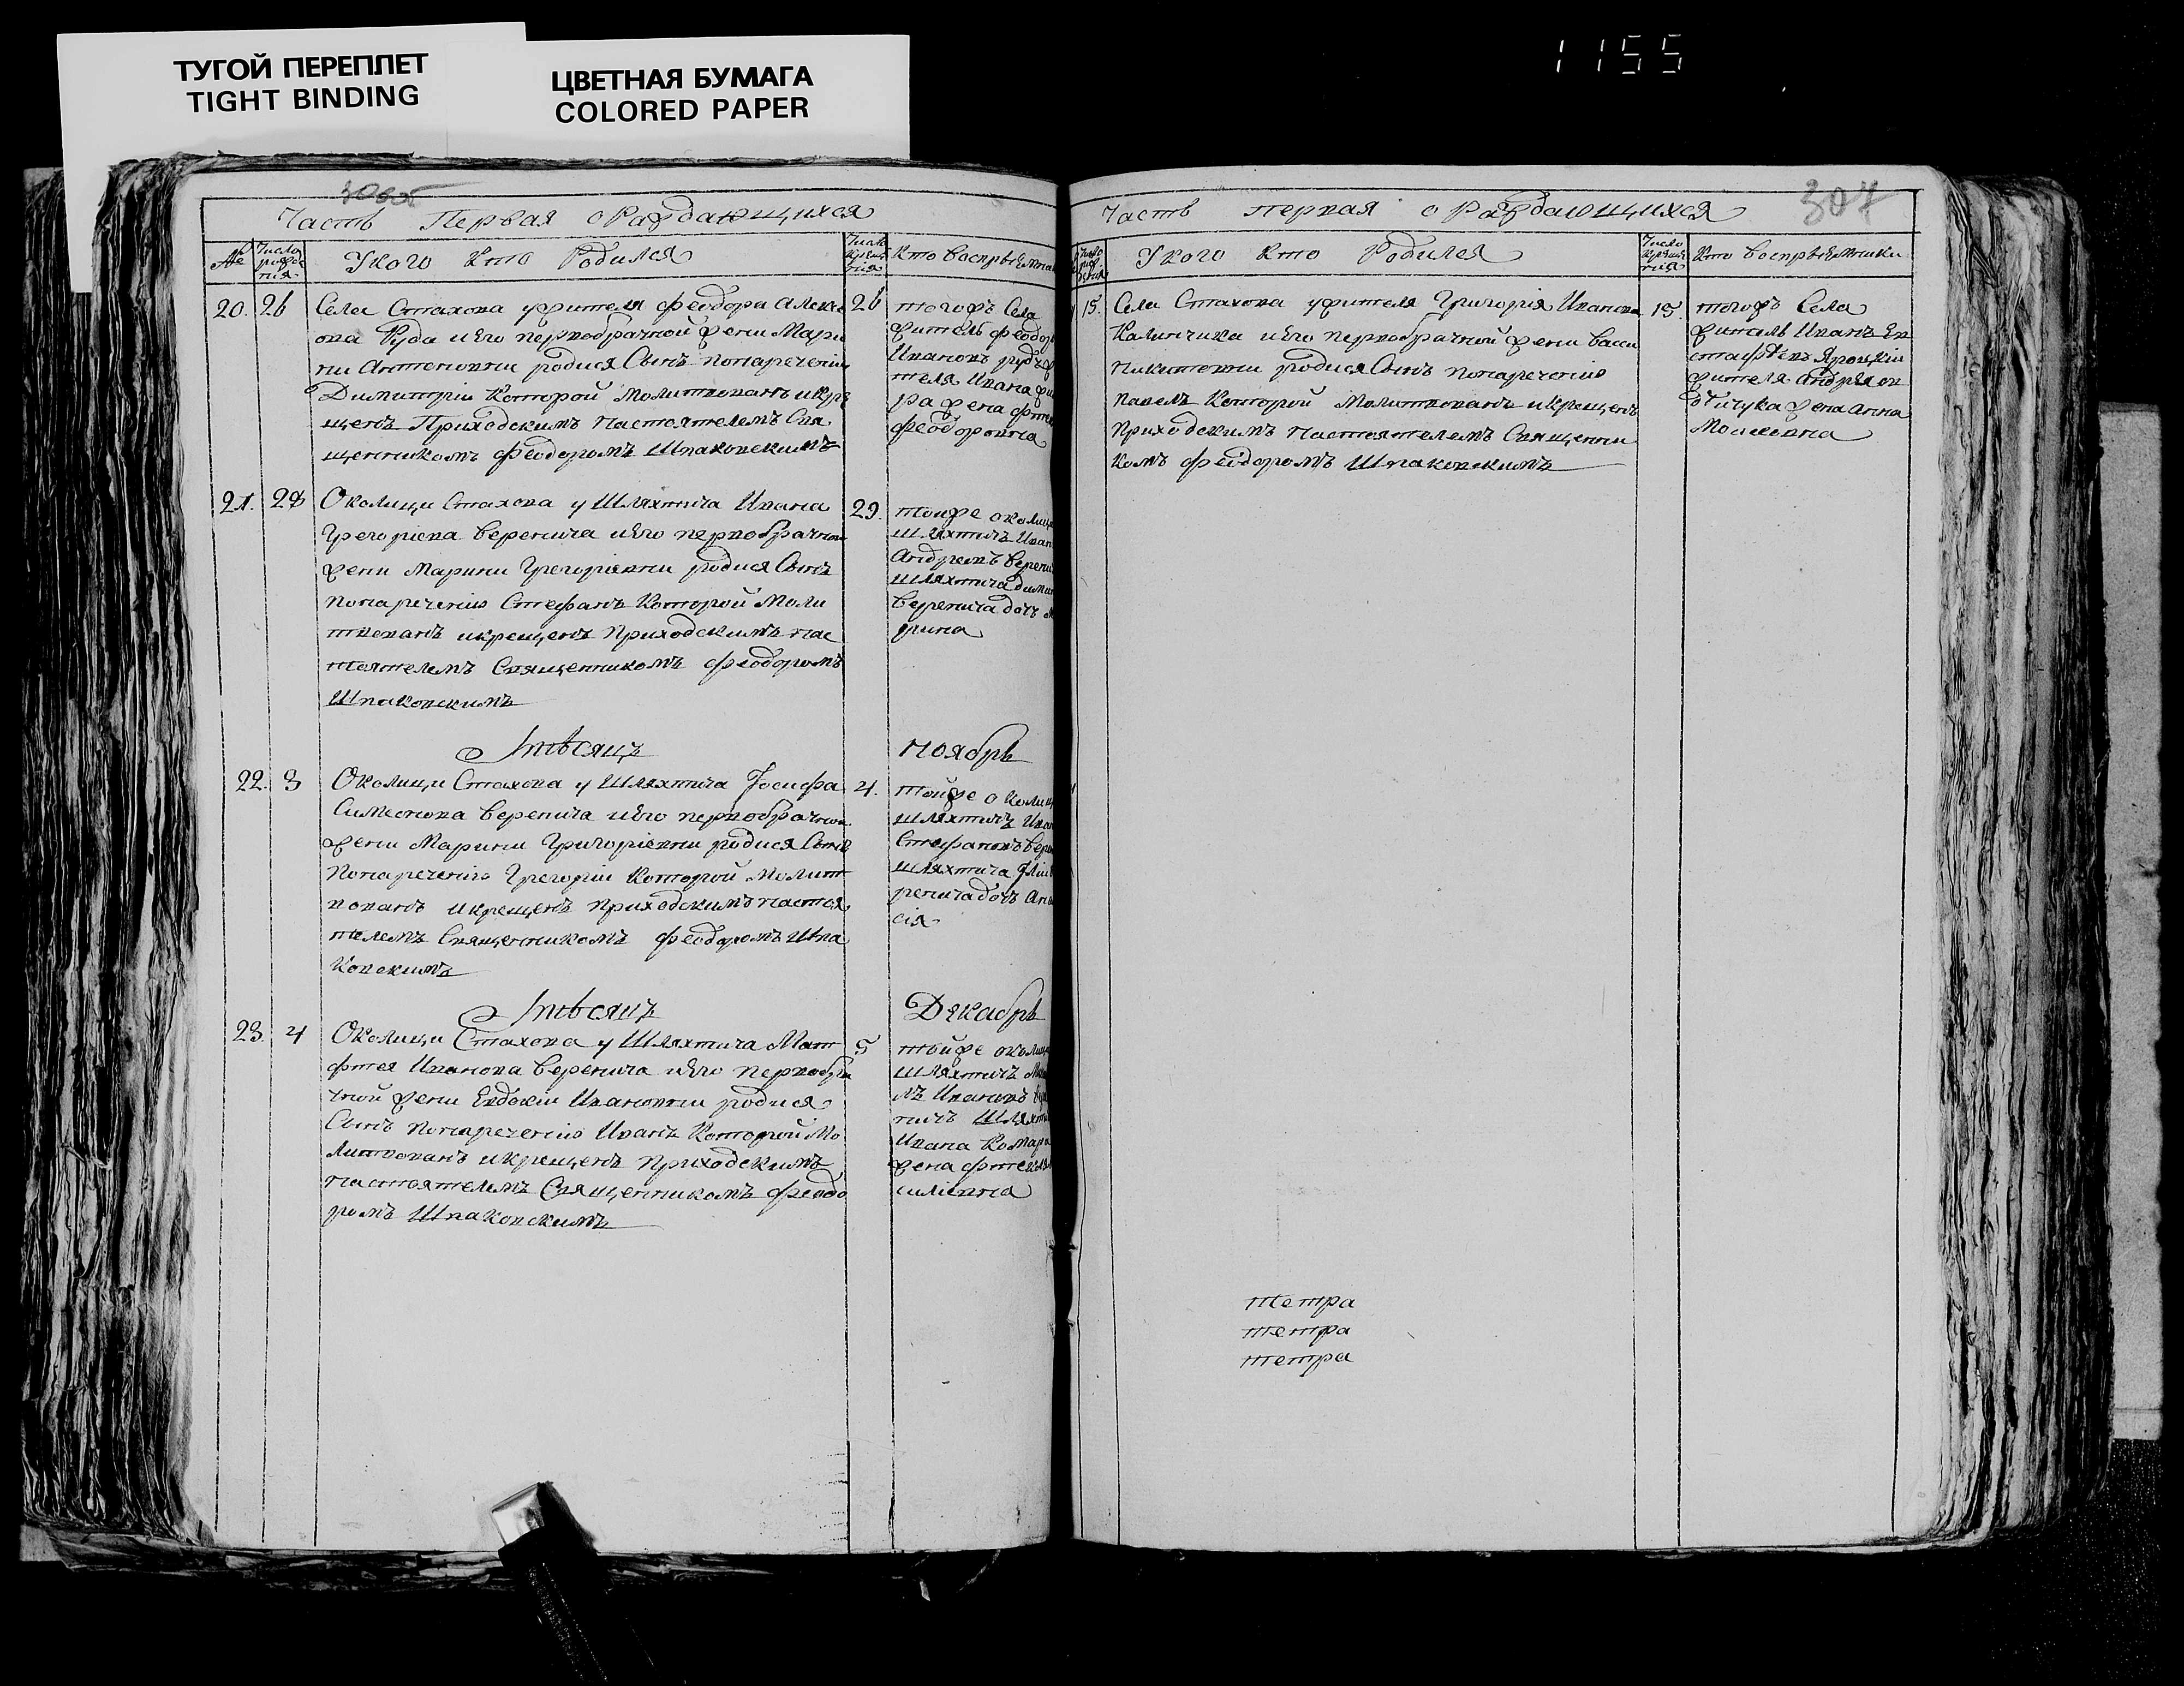 ТУГОЙ ПЕРЕПЛЕТ
TIGHT BINDING
ЦВЕТНАЯ БУМАГА
COLORED PAPER
1155
Часть Первая о Раждающихся
№
Число рожденія
Укого Кто Родился
Число крещенія
Кто Воспрыемники
20. 26
Села Стахова ужителя Феодора Алексѣ
ова Руда иего первобрачной жени Мари
ни Антоновни родися Сынъ понареченію
Димитрій Которой Молитвованъ икре
щенъ Приходскимъ Настоятелемъ Свя
щенникомъ Феодоромъ Шпаковскимъ
26
тогожъ Села
житель Феодор
Ивановъ
теля Ивана
жена
Феодоровна
21. 28
Околици Стахова у Шляхтича Ивана
Грегоріева Веренича иего первобрачной
жени Марини Грегоріевни родися Сынъ
понареченію Стефанъ Которой Моли
твованъ икрещенъ Приходскимъ нас
тоятелемъ Священникомъ Феодоромъ
Шпаковскимъ
29.
тойже околиц
шляхтичъ Иван
АндреевъВерени
шляхтича Дими
Веренича дочъ
рина
Мѣсяцъ Ноябрь
22. 3
Околици Стахова у Шляхтича Іосифа
Симеонова Веренича иего первобрачной
жени Марини Григоріевни родися Сынъ
Понареченію Грегорій Которой Молит
вованъ икрещенъ приходскимъ настоя
телемъ Священникомъ Феодоромъ Шпа
ковскимъ
4.
тойже околиц
шляхтичъ Иван
Стефановъ Вере
шляхтича
ренича дочъ
сія
Мѣсяцъ Декабрь
23. 4
Околици Стахова у Шляхтича Мат
фтея Иванова Веренича иего первобра
чной жени Евдокіи Ивановни родися
Сынъ понареченію Иванъ Которой Мо
литвованъ икрещенъ приходскимъ
настоятелемъ Священникомъ Феодо
ромъ Шпаковскимъ
5
тойже околиц
шляхтичъ
лъ Ивановъ
ничъ Шляхт
Ивана Комар
жена
силіевна
Часть первая о Раждающихся
307
Число рожденія
Укого Кто Родился
Число крещенія
Кто Воспрыемники
15.
Села Стахова ужителя Григорія Иванова
Калинчика иего первобрачной жени Васси
Никитовни родися Сынъ понареченію
Павелъ Которой Молитвованъ икрещенъ
приходскимъ настоятелемъ Священни
комъ Феодоромъ Шпаковскимъ
15.
тогожъ Села
житель Иванъ Ев
стафіевъ Яроцкій
жителя Андрея
жена Анна
Моисеовна
тетра
тетра
тетра